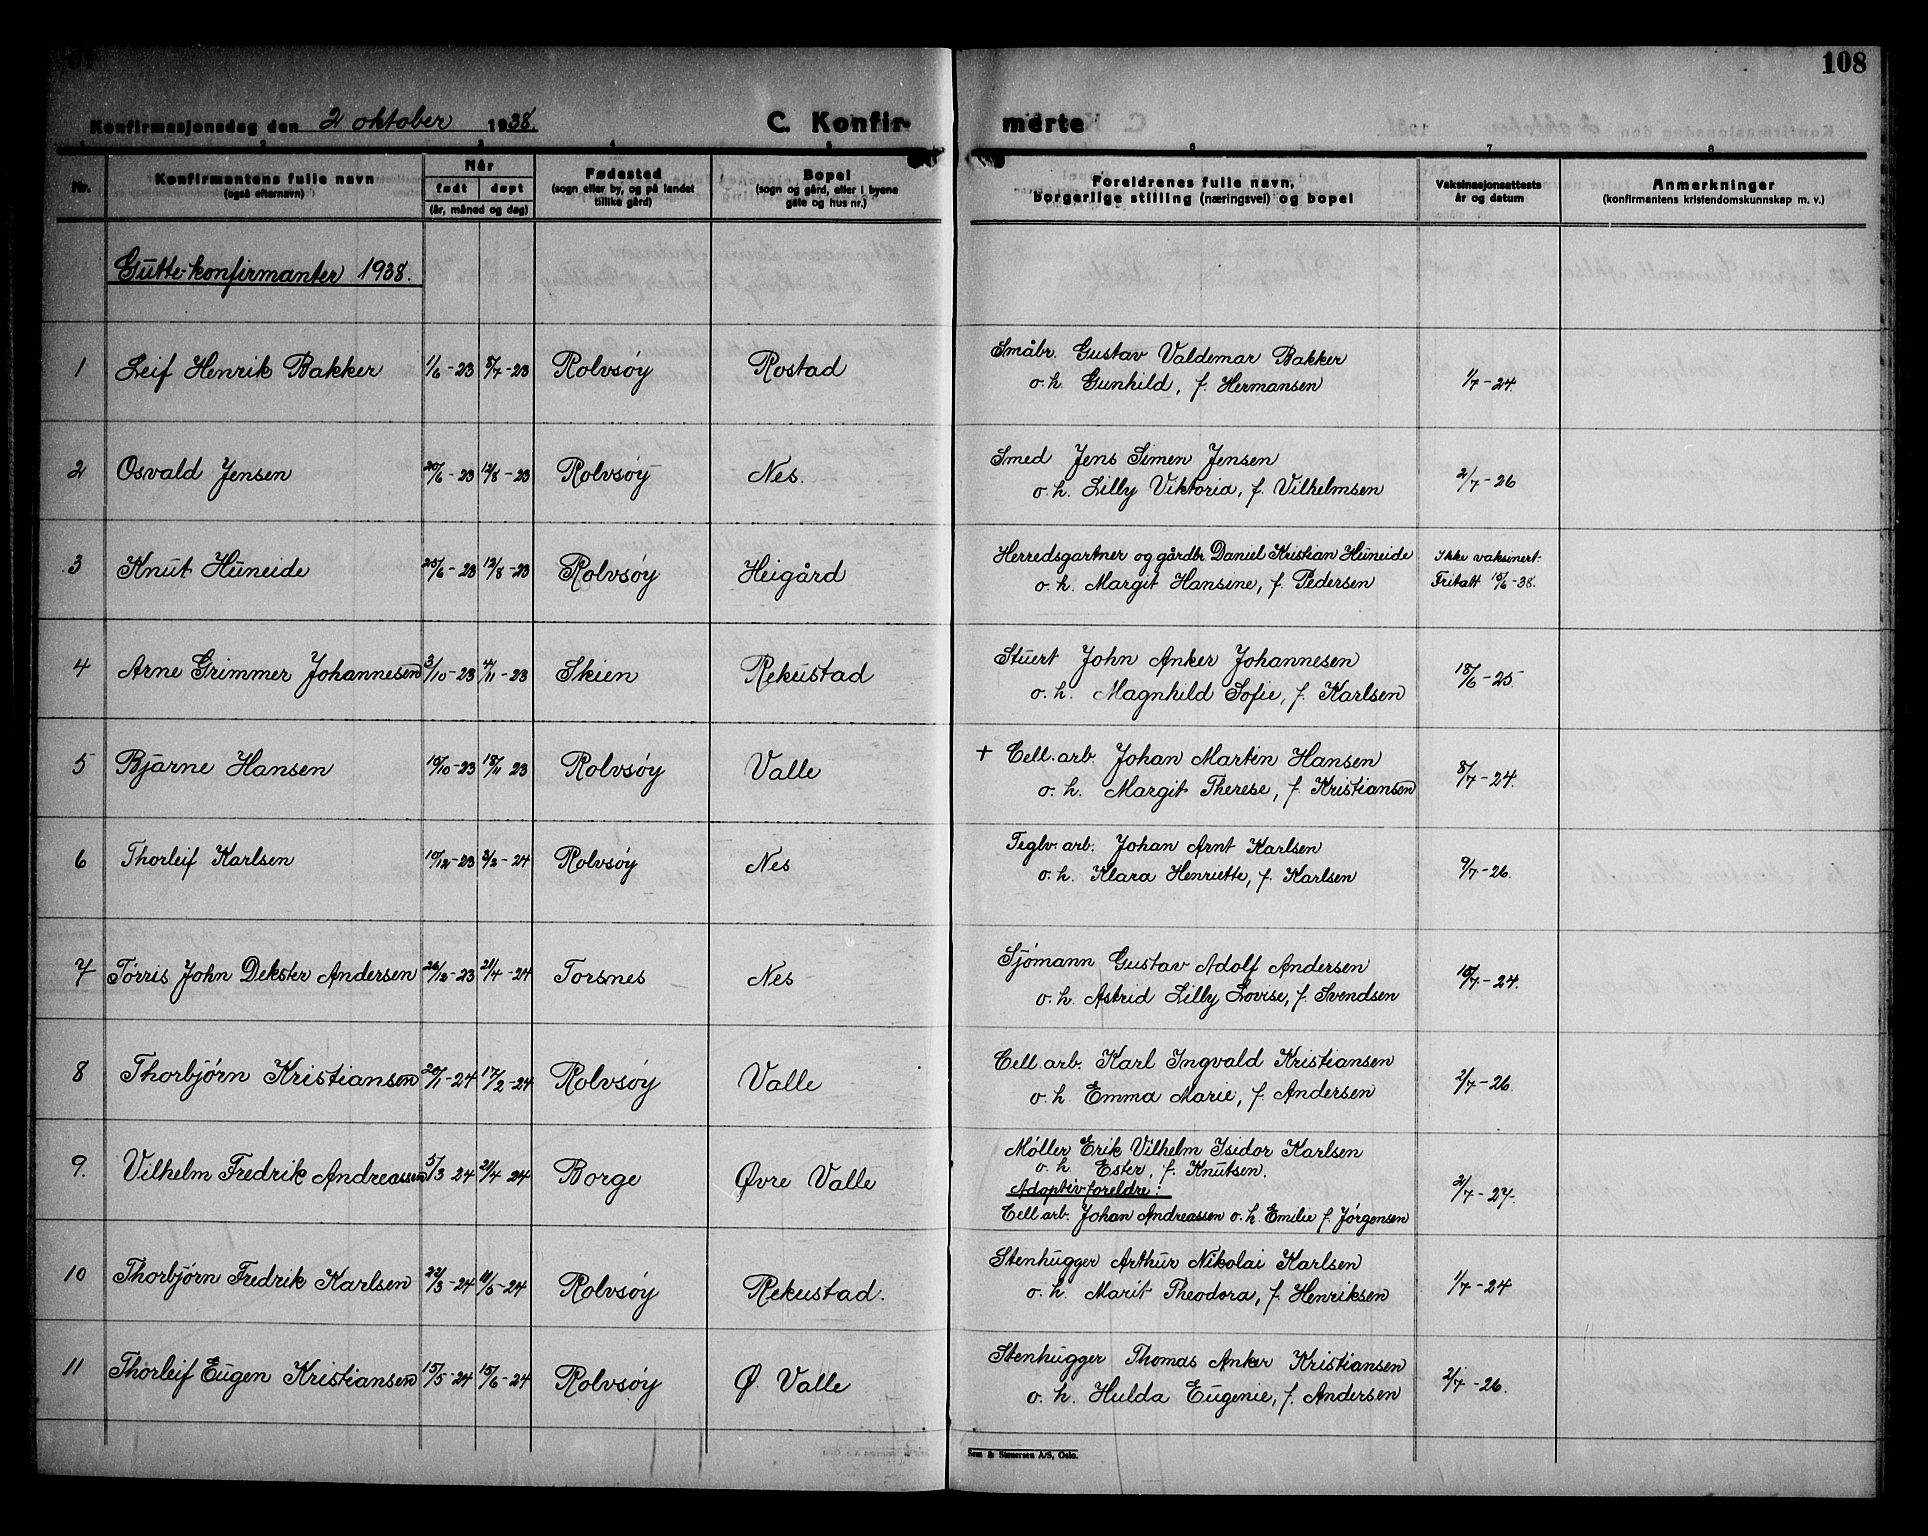 108
Konfirmasjonsdag den 2 oktober 1938.
C. Konfir-
merte
1 2 3 4 5 6 7 8
Nr.
Konfirmantens fulle navn
(også efternavn)
Når
født døpt
(år, måned og dag)
Fødested
(sogn eller by, og på landet
tillike gård)
Bopel
(sogn og gård, eller i byene
gate og hus nr.)
Foreldrenes fulle navn,
borgerlige stilling (næringsvei) og bopel
Vaksinasjonsattests
år og datum
Anmerkninger
(konfirmantens kristendomskunnskap m. v.)
Gutte-konfirmanter 1938.
1 Leif Henrik Bakker 1/6-23 8/7-23 Rolvsøy Rostad
Småbr. Gustav Valdemar Bakker
o. h. Gunhild, f. Hermansen
1/7-24.
2 Osvald Jensen 20/6-23 12/8-23 Rolvsøy Nes.
Smed Jens Simen Jensen
o. h. Lilly Viktoria, f. Vilhelmsen
2/7-26
3 Knut Huneide 25/6-23 12/8-23 Rolvsøy Heigård
Herredsgartner og gårdbr. Daniel Kristian Huneide
o. h. Margit Hansene, f. Pedersen
Ikke vaksinert.
Fritatt 10/6-38.
4 Arne Grimmer Johannesen 3/10-23 4/11-23 Skien Rekustad
Stuert John Anker Johannesen
o. h. Magnhild Sofie, f. Karlsen
18/6-25
5 Bjarne Hansen 10/10-23 18/11 23 Rolvsøy Valle
+ Cell. arb. Johan Martin Hansen
o. h. Margit Therese, f. Kristiansen
8/7-24.
6 Thorleif Karlsen 10/12-23 3/2-24 Rolvsøy Nes
Teglv. arb. Johan Arnt Karlsen
o. h. Klara Henriette, f. Karlsen
9/7-26.
7 Tørris John Dekster Andersen 26/12-23 21/4-24 Torsnes Nes
Sjømann Gustav Adolf Andersen
o. h. Astrid Lilly Lovise, f. Svendsen
10/7-24.
8 Thorbjørn Kristiansen 20/1-24 17/2-24 Rolvsøy Valle
Cell. arb. Karl Ingvald Kristiansen
o. h. Emma Marie, f. Andersen
2/7-26.
9. Vilhelm Fredrik Andreassen 5/3 24 21/4 24 Borge Øvre Valle
Møller Erik Vilhelm Isidor Karlsen
o. h. Ester, f. Knutsen.
Adoptivforeldre:
Cell. arb. Johan Andreassen o. h. Emilie f. Jørgensen
2/7-27.
10 Thorbjørn Fredrik Karlsen 22/3-24 11/5-24 Rolvsøy Rekustad.
Stenhugger Arthur Nikolai Karlsen
o. h. Marit Theodora, f. Henriksen
1/7-24
11 Thorleif Eugen Kristiansen 15/5-24 15/6-24 Rolvsøy Ø. Valle
Stenhugger Thomas Anker Kristiansen
o. h. Hulda Eugenie, f. Andersen
2/7-26.
Sem & Stenersen A/S, Oslo.